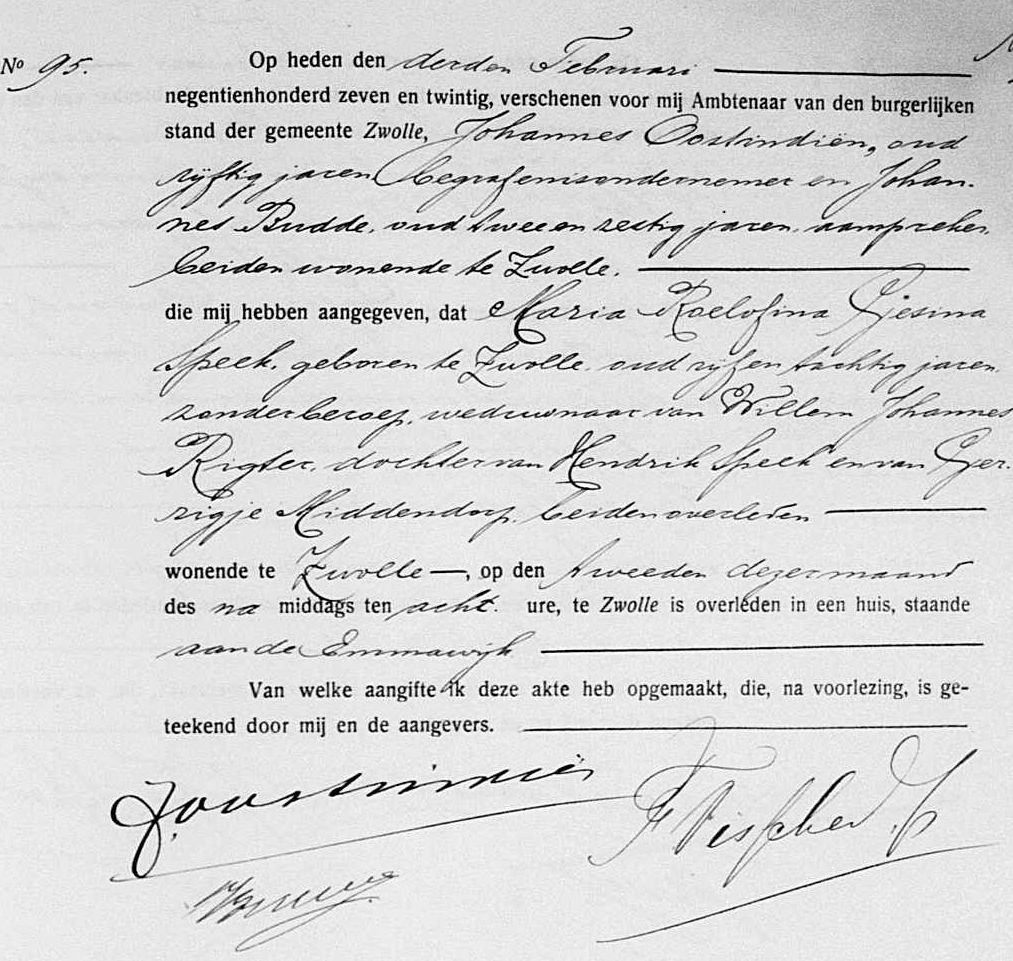 Nº 95.
Op heden den derden Februari
negentienhonderd zeven en twintig, verschenen voor mij Ambtenaar van den burgerlijken
stand der gemeente Zwolle, Johannes Oostindiën, oud
vijftig jaren, begrafenisondernemer en Johan-
nes Budde, oud twee en zestig jaren, aanspreker,
beiden wonende te Zwolle,
die mij hebben aangegeven, dat Maria Roelofina Gesina
Speek, geboren te Zwolle, oud vijf en tachtig jaren,
zonder beroep, weduwnaar van Willem Johannes
Rigter, dochter van Hendrik Speek en van Ger-
rigje Middendorp, beiden overleden
wonende te Zwolle, op den tweeden dezer maand
des na middags ten acht ure, te Zwolle is overleden in een huis, staande
aan de Emmawijk
Van welke aangifte ik deze akte heb opgemaakt, die, na voorlezing, is ge-
teekend door mij en de aangevers.
J. Oostindiën
F. Visscher